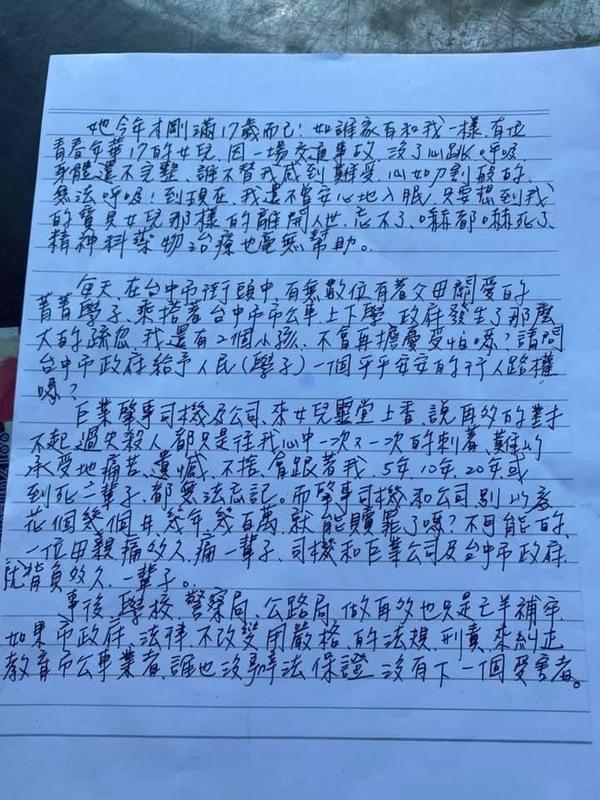 她今年才剛滿17歲而已!如誰家有和我一樣,有位
青春年華17的女兒,因一場交通事故,沒了心跳呼吸,
身體還不完整,誰不替我感到難受,心如刀割般的,
無法呼吸!到現在,我還不會安心地入眠,只要想到我
的寶貝女兒那樣的離開人世,忘不了,嚇都嚇死了,
精神科藥物治療也毫無幫助。
每天,在台中市街頭中,有無數位有著父母關愛的
菁菁學子,乘搭著台中市市公車上下學,政府發生了那麼
大的疏忽,我還有2個小孩,不會再擔憂受怕嗎?請問
台中市政府給予人民(學子)一個平平安安的行人路權
嗎?
巨業肇事司機及公司,來女兒靈堂上香,說再多的對
不起,過失殺人都只是往我心中一次又一次的刺著,難以
承受地痛苦,遺憾,不捨,會跟著我,5年,10年,20年或
到死一輩子,都無法忘記。而肇事司機和公司,別以為
花個幾個月,幾年,幾百萬,就能贖罪了嗎?不可能的,
一位母親痛多久,痛一輩子,司機和巨業公司及台中市政府,
就背負多久,一輩子。
事後,學校,警察局,公路局,做再多也只是亡羊補牢,
如果市政府,法律,不改變用嚴格,的法規,刑責,來糾正
教育市公車業者,誰也沒辦法保證,沒有下一個受害者。